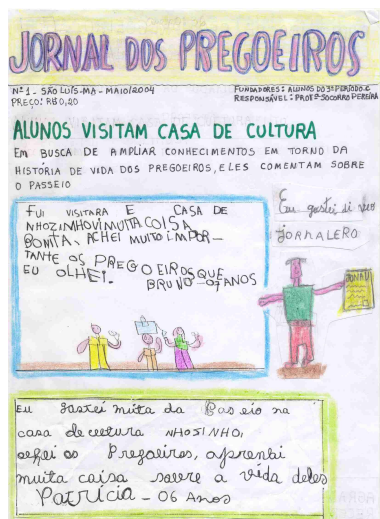 JORNAL DOS PREGOEIROS
Nº 1 - SÃO LUÍS-MA - MAIO/2004
PREÇO: R$ 0,20
FUNDADORES: ALUNOS DO 3º PERÍODO C
RESPONSÁVEL: PROFª SOCORRO PEREIRA
ALUNOS VISITAM CASA DE CULTURA
EM BUSCA DE AMPLIAR CONHECIMENTOS EM TORNO DA
HISTÓRIA DE VIDA DOS PREGOEIROS, ELES COMENTAM SOBRE
O PASSEIO
FUI VISITARA E CASA DE
NHOZINHOVI MUITA COISA
BONITA, ACHEI MUITO IMPOR-
TANTE OS PREGOEIROS QUE
EU OLHEI.
BRUNO - 07 ANOS
Eu gostei di
JORNALERO
JORNAL
Eu gostei da Pas eio na
casa de NHOSINHO,
os Pregoeiros, aprendi
muita a vida deles
Patrícia - 06 Anos